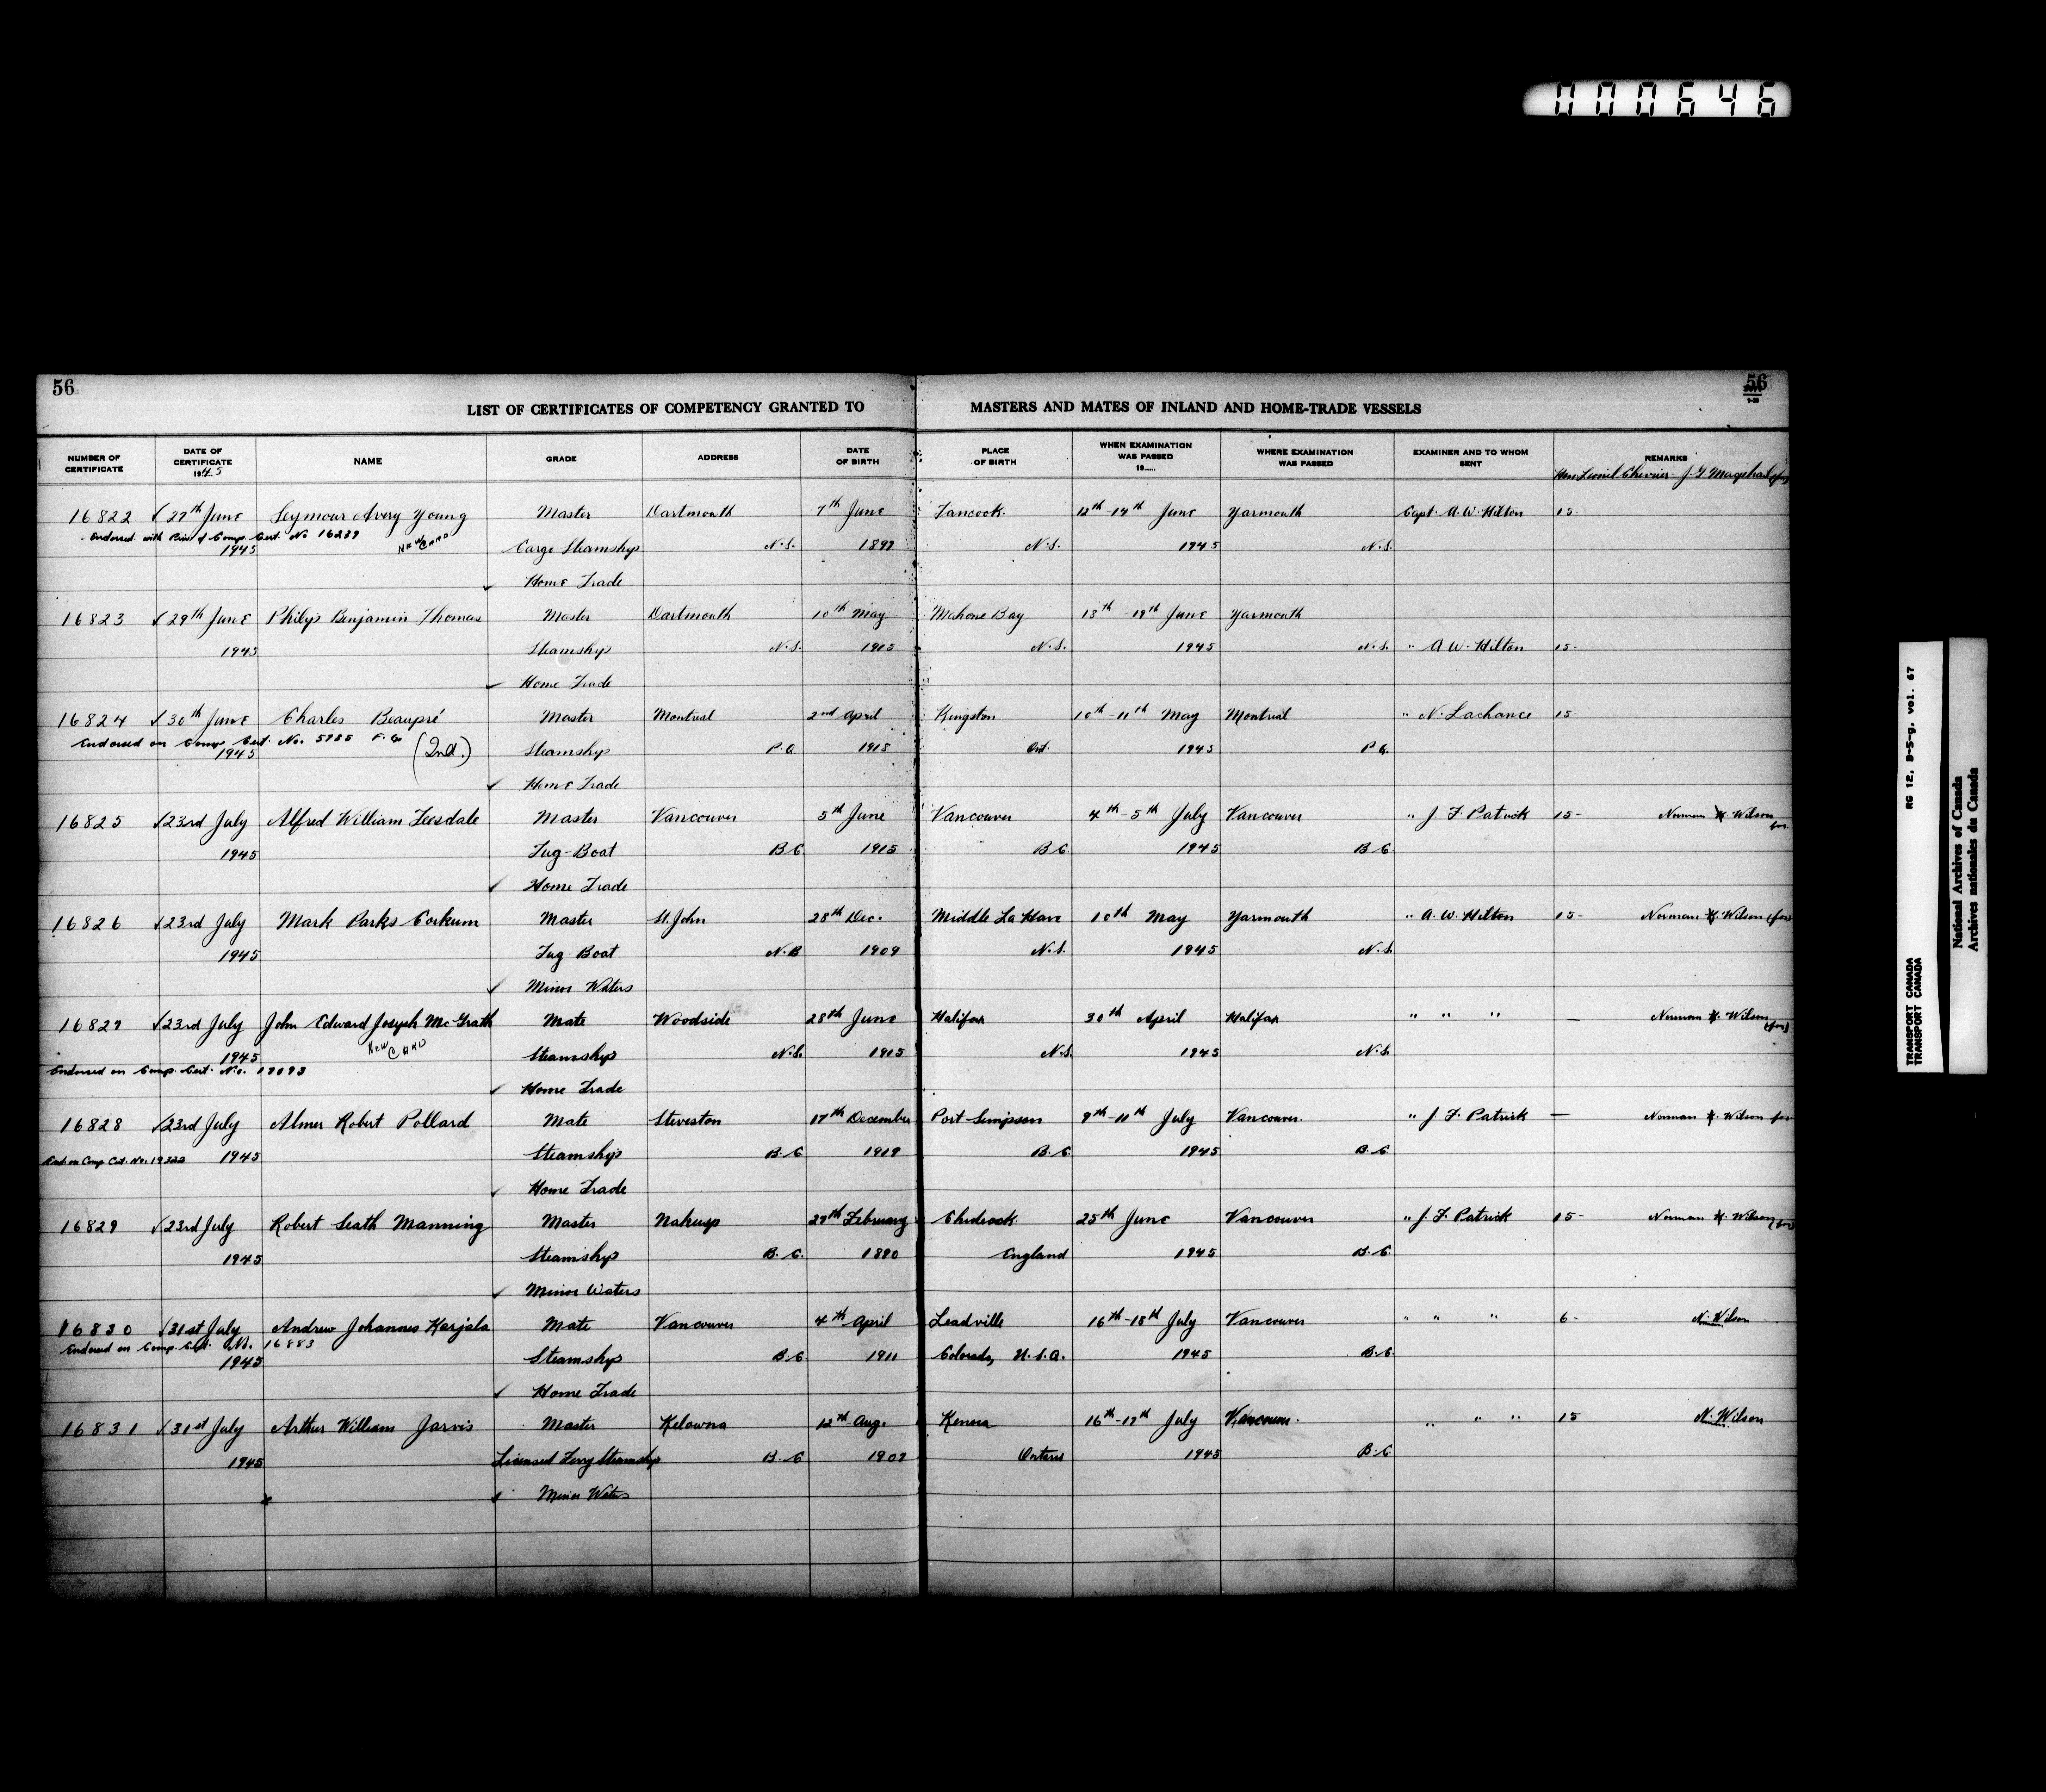 000646
56
56
LIST OF CERTIFICATES OF COMPETENCY GRANTED TO MASTERS AND MATES OF INLAND AND HOME-TRADE VESSELS
NUMBER OF CERTIFICATE DATE OF CERTIFICATE 1945 NAME GRADE ADDRESS DATE OF BIRTH PLACE OF BIRTH WHEN EXAMINATION WAS PASSED 19..... WHERE EXAMINATION WAS PASSED EXAMINER AND TO WHOM SENT REMARKS
Hon Lionel Chevrier - J. G Macphail (for)
16822 √ 27th June Seymour Avery Young Master Dartmouth 7th June Tancook 12th-14th June Yarmouth Capt. A. W. Hilton 15-
Endorsed with Prev. of Comp. Cert. No 16239 NEW CARD
1945 Cargo Steamship N.S. 1897 N.S. 1945 N.S.
√ Home Trade
16823 √ 29th June Philip Benjamin Thomas Master Dartmouth 10th May Mahone Bay 18th-19th June Yarmouth
1945 Steamship N.S. 1915 N.S. 1945 N.S. " A W. Hilton 15-
√ Home Trade
16824 √ 30th June Charles Beaupré Master Montreal 2nd April Kingston 10th-11th May Montreal " N. Lachance 15-
Endorsed on Comp. Cert. No. 5985 F.G. (2nd.)
1945 Steamship P.Q. 1918 Ont. 1945 P.Q.
√ Home Trade
16825 √ 23rd July Alfred William Teesdale Master Vancouver 5th June Vancouver 4th-5th July Vancouver " J. F. Patrick 15- Norman Wilson for
1945 Tug-Boat B.C. 1915 B.C. 1945 B.C.
√ Home Trade
16826 √ 23rd July Mark Parks Corkum Master St. John 28th Dec. Middle La Have 10th May Yarmouth " A. W. Hilton 15- Norman Wilson (for)
1945 Tug-Boat N.B 1909 N.S. 1945 N.S.
√ Minor Waters
16827 √ 23rd July John Edward Joseph McGrath Mate Woodside 28th June Halifax 30th April Halifax " " " — Norman Wilson (for)
NEW CARD
1945 Steamship N.S. 1915 N.S. 1945 N.S.
Endorsed on Comp. Cert. No. 17093
√ Home Trade
16828 √ 23rd July Almer Robert Pollard Mate Steveston 17th December Port Simpson 9th-11th July Vancouver " J. F. Patrick — Norman Wilson for
End. on Comp. Cert. No. 19322 1945 Steamship B.C. 1919 B.C. 1945 B.C.
√ Home Trade
16829 √ 23rd July Robert Seath Manning Master Nakusp 29th February 25th June Vancouver " J. F. Patrick 15- Norman Wilson (for)
1945 Steamship B.C. 1890 England 1945 B.C.
√ Minor Waters
16830 √ 31st July Andrew Johannes Karjala Mate Vancouver 4th April Leadville 16th-18th July Vancouver " " " 6- N. Wilson
Endorsed on Comp. Cert. No. 16883
1945 Steamship B.C. 1911 Colorado, U.S.A. 1945 B.C.
√ Home Trade
16831 √ 31st July Arthur William Jarvis Master Kelowna 12th Aug. Kenora 16th-17th July Vancouver " " " 15 N. Wilson
1945 Licensed Ferry Steamship B.C. 1907 Ontario 1945 B.C.
√ Minor Waters
TRANSPORT CANADA RG 12, B-5-g, vol. 67
TRANSPORT CANADA
National Archives of Canada
Archives nationales du Canada